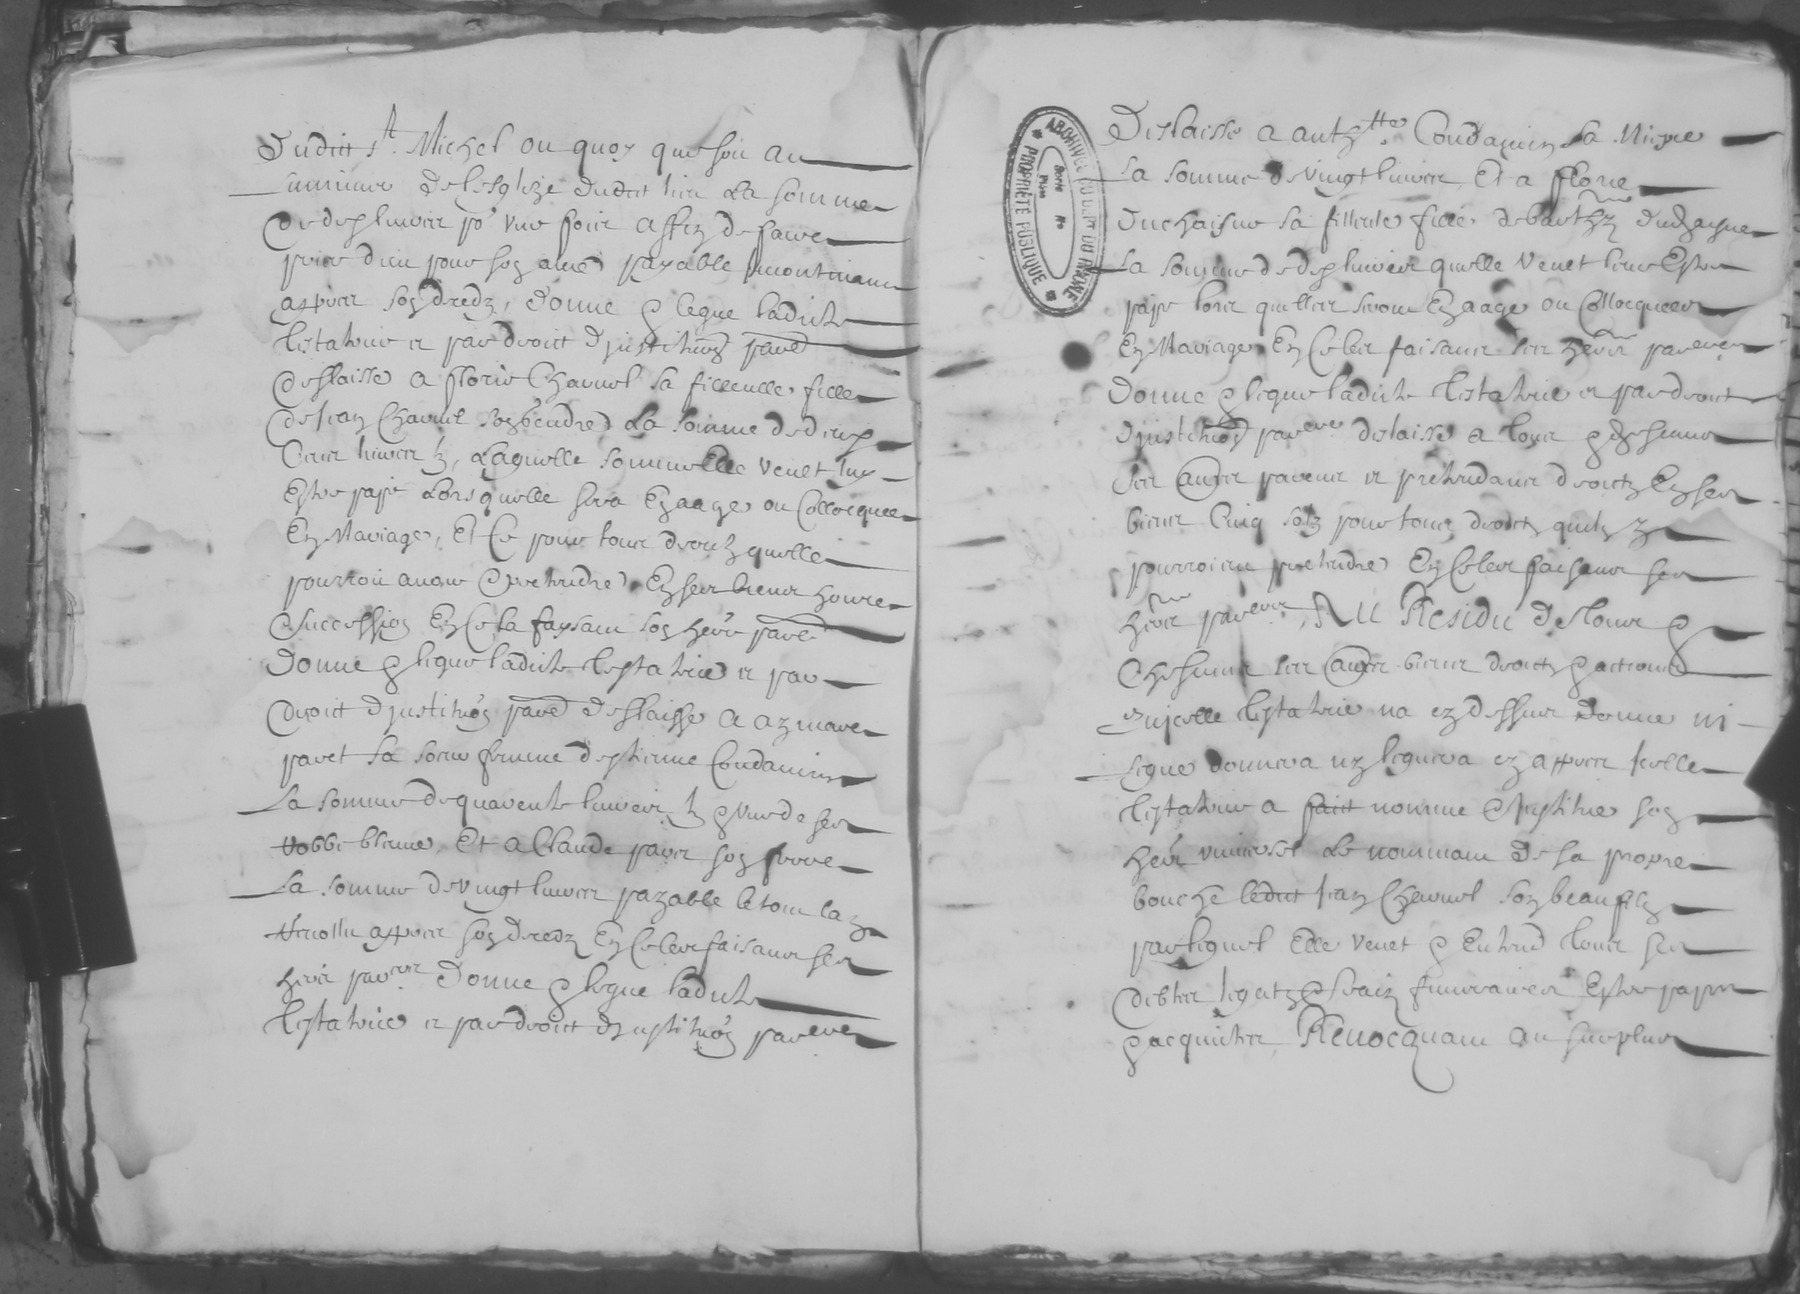 dudict St. Michel ou quoy que soit au
luminier de lesglize dudict lieu la somme
de dix livres po.r une fois affin de faire
prier dieu pour son ame payable incontinant
appres son dredz, donne & legue ladicte
testatrice et par droict d'institu.on parli.e
deslaisse a florie Charvet sa filleulle fille
de Jean Charvet son gendre la somme de deux
Cens livres tz, laquelle somme elle veult luy
estre paye lors quelle sera en aage ou collocquee
en mariage, Et ce pour tous droictz quelle
pourroit avoir & pretendre en ses biens hoirie
& succession En ce la faysant son her.e parli.e
donne & legue ladicte testatrice et par
droict d'institu.on parli.e deslaisse a aymare
paret sa soeur femme destienne Condamin
la somme de quarente livres tz & une de ses
robbe bleme, Et a Claude paret son frere
la somme de vingt livres payable le tout lan
revollu appres son dredz En ce les faisant ses
her.s par.ers donne & legue ladicte
testatrice et par droict d'institu.on par.ere
Dislaisse a anth.tte Condamin sa Niepce
la somme de vingt livres, Et a florie
duchaisne sa fillieule fille de barth.y duchaysne
la somme de dix livres quelle veult leur Estre
paye lors quelles seront En aage ou Collocquees
En Mariage En ce les faisant ses her.s par.ers
donne & legue ladicte testatrice et par droict
d'institu.on par.ere dislaisse a tous & chescuns
ses autres parens et pretendans droictz En ses
biens Cinq solz pour tous droictz quilz y
pourroient pretendre En ce les faisant ses
her.s par.ers, Au Residu de tous &
Chescuns ses autres biens droictz & actions
dont icelle testatrice na cy dessus donne ni
legue donnera ny leguera cy appres Icelle
testatrice a faict nomme & institue son
her.r universel le nommant de sa propre
bouche ledict Jean Charvet son beau filz
par lequel Elle veult & Entend tous ses
debtes legatz & fraiz funeraires Estre payes
& acquictes, Revocquant au surplus
ARCHIVES DU DEP.T DU RHONE
PROPRIÉTÉ PUBLIQUE